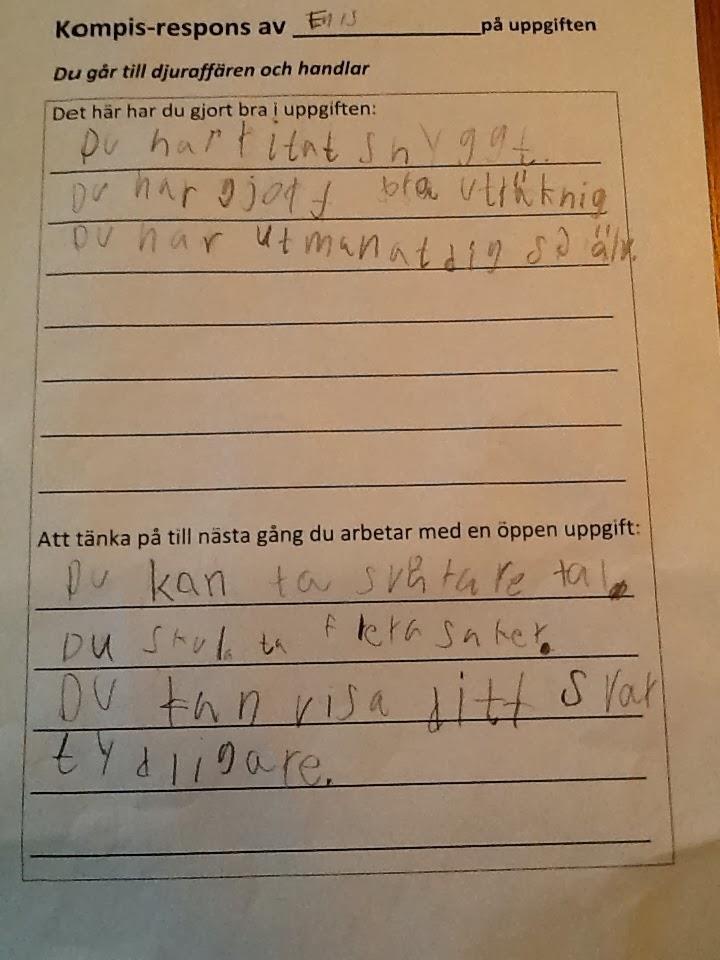 Kompis-respons av Enis på uppgiften
Du går till djuraffären och handlar
Det här har du gjort bra i uppgiften:
Du har titat snyggt.
Du har gjort bra uträknig
Du har utmanat dig själv.
Att tänka på till nästa gång du arbetar med en öppen uppgift:
Du kan ta svårare tal.
Du skula ta flera saker.
Du kan visa ditt svar
tydligare.